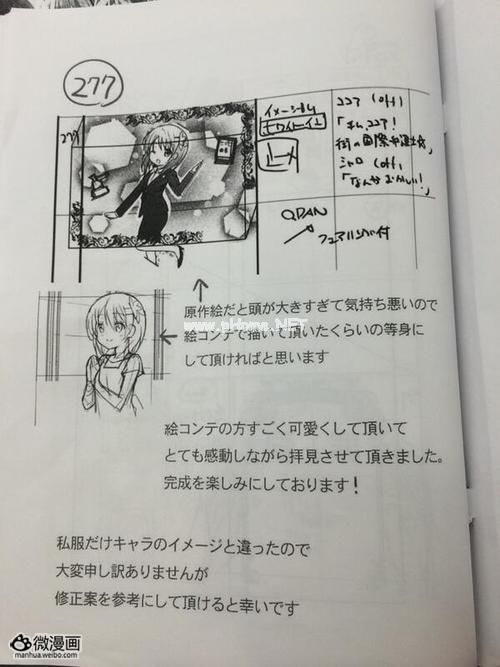 277
277
ココア (off)
「私、ココア!
街の国際弁護士よ」
シャロ (off)
「なんかおかしい!」
Q.PAN
原作絵だと頭が大きすぎて気持ち悪いので
絵コンテで描いて頂いたくらいの等身に
して頂ければと思います
絵コンテの方すごく可愛くして頂いて
とても感動しながら拝見させて頂きました。
完成を楽しみにしております!
私服だけキャラのイメージと違ったので
大変申し訳ありませんが
修正案を参考にして頂けると幸いです
微漫画
manhua.weibo.com